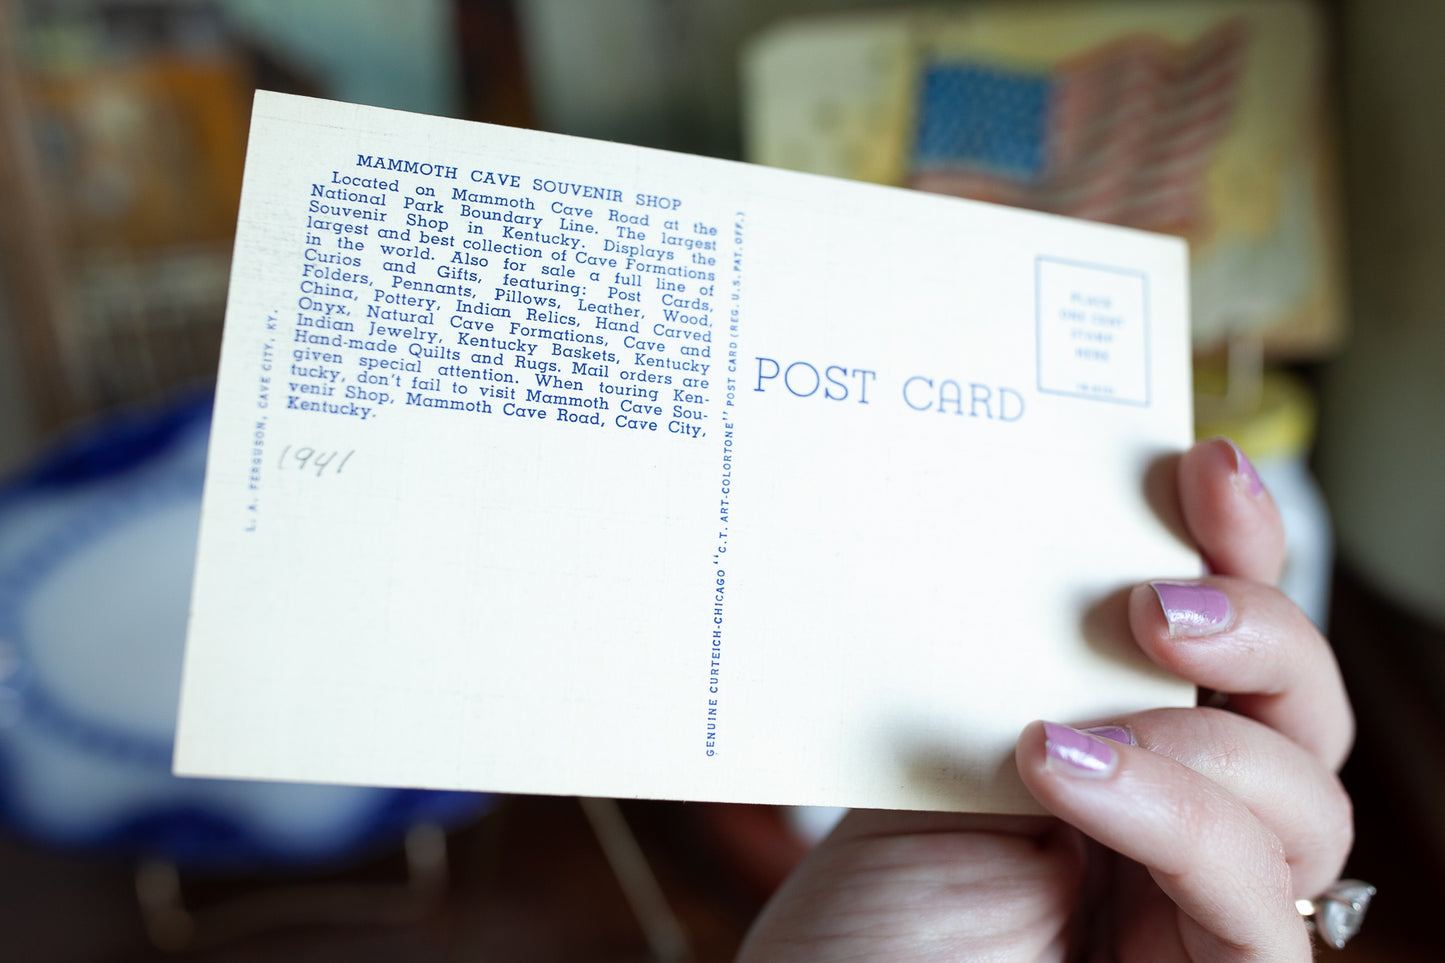 MAMMOTH CAVE SOUVENIR SHOP
Located on Mammoth Cave Road at the
National Park Boundary Line. The largest
Souvenir Shop in Kentucky. Displays the
largest and best collection of Cave Formations
in the world. Also for sale a full line of
Curios and Gifts, featuring: Post Cards,
Folders, Pennants, Pillows, Leather, Wood,
China, Pottery, Indian Relics, Hand Carved
Onyx, Natural Cave Formations, Cave and
Indian Jewelry, Kentucky Baskets, Kentucky
Hand-made Quilts and Rugs. Mail orders are
given special attention. When touring Ken-
tucky, don't fail to visit Mammoth Cave Sou-
venir Shop, Mammoth Cave Road, Cave City,
Kentucky.
1941
L. A. FERGUSON, CAVE CITY, KY.
GENUINE CURTEICH-CHICAGO "C.T. ART-COLORTONE" POST CARD (REG. U.S. PAT. OFF.)
POST CARD
PLACE
ONE CENT
STAMP
HERE